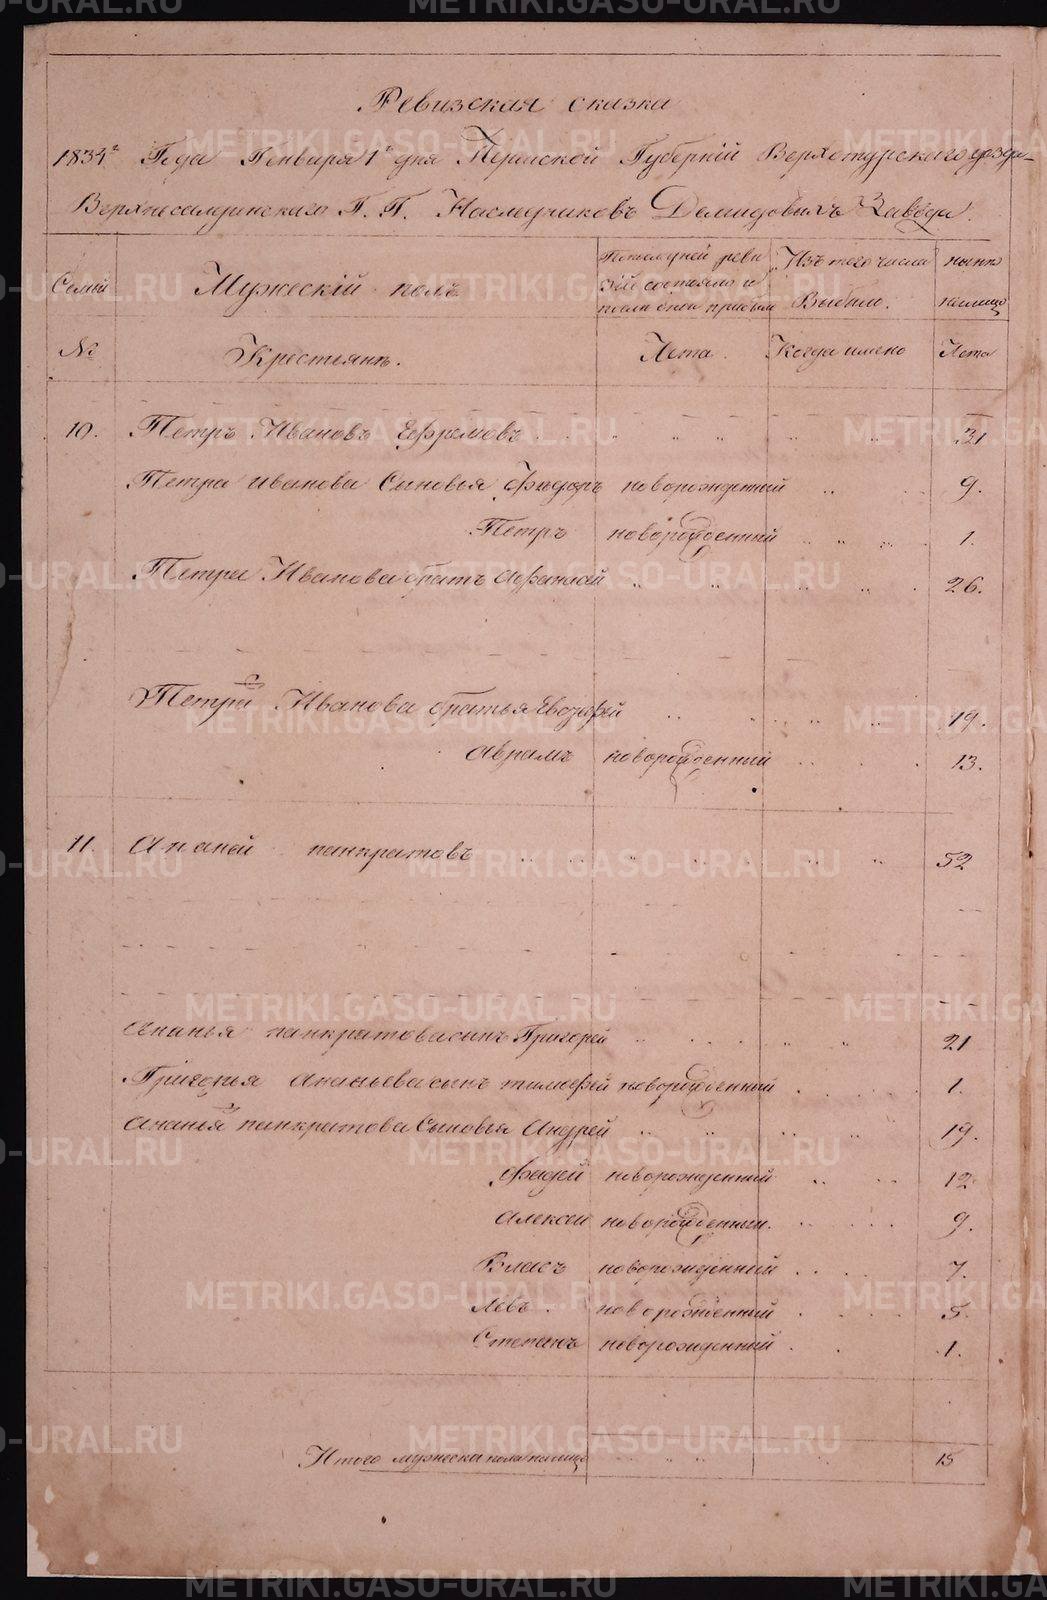 Ревизская сказка
1834го Года Генваря 1го дня Пермской Губерній Верхотурскаго уезда
Верхнесалдинскаго Г. Г. Наследниковъ Демидовыхъ Завода.
Семьи Мужескій полъ Последней реви Изъ того числа ныне
зій состояло и
после оной прибыло Выбыли. налицо
№ Крестьянъ. Лета. Когда имено Лета
10. Петръ Ивановъ Ефремовъ 31
Петра Иванова Сыновья Федоръ новорожденный 9.
Петръ новорожденный 1.
Петра Иванова братъ Афанасей 26.
Петра Иванова братья 19.
Аврамъ новорожденный 13.
11. Ананей панкратовъ 52
Ананья панкратова сынъ Григорей 21
Григорья Ананьева сынъ тимофей новорожденный 1.
Ананья панкратова Сыновья Андрей 19.
Фадей новорожденный 12
Алексеи новорожденныи. 9.
Власъ новорожденный 7.
Левъ. новорожденный 5.
Степанъ новорожденный 1.
Итого мужеска пола налицо 15
METRIKI.GASO-URAL.RU